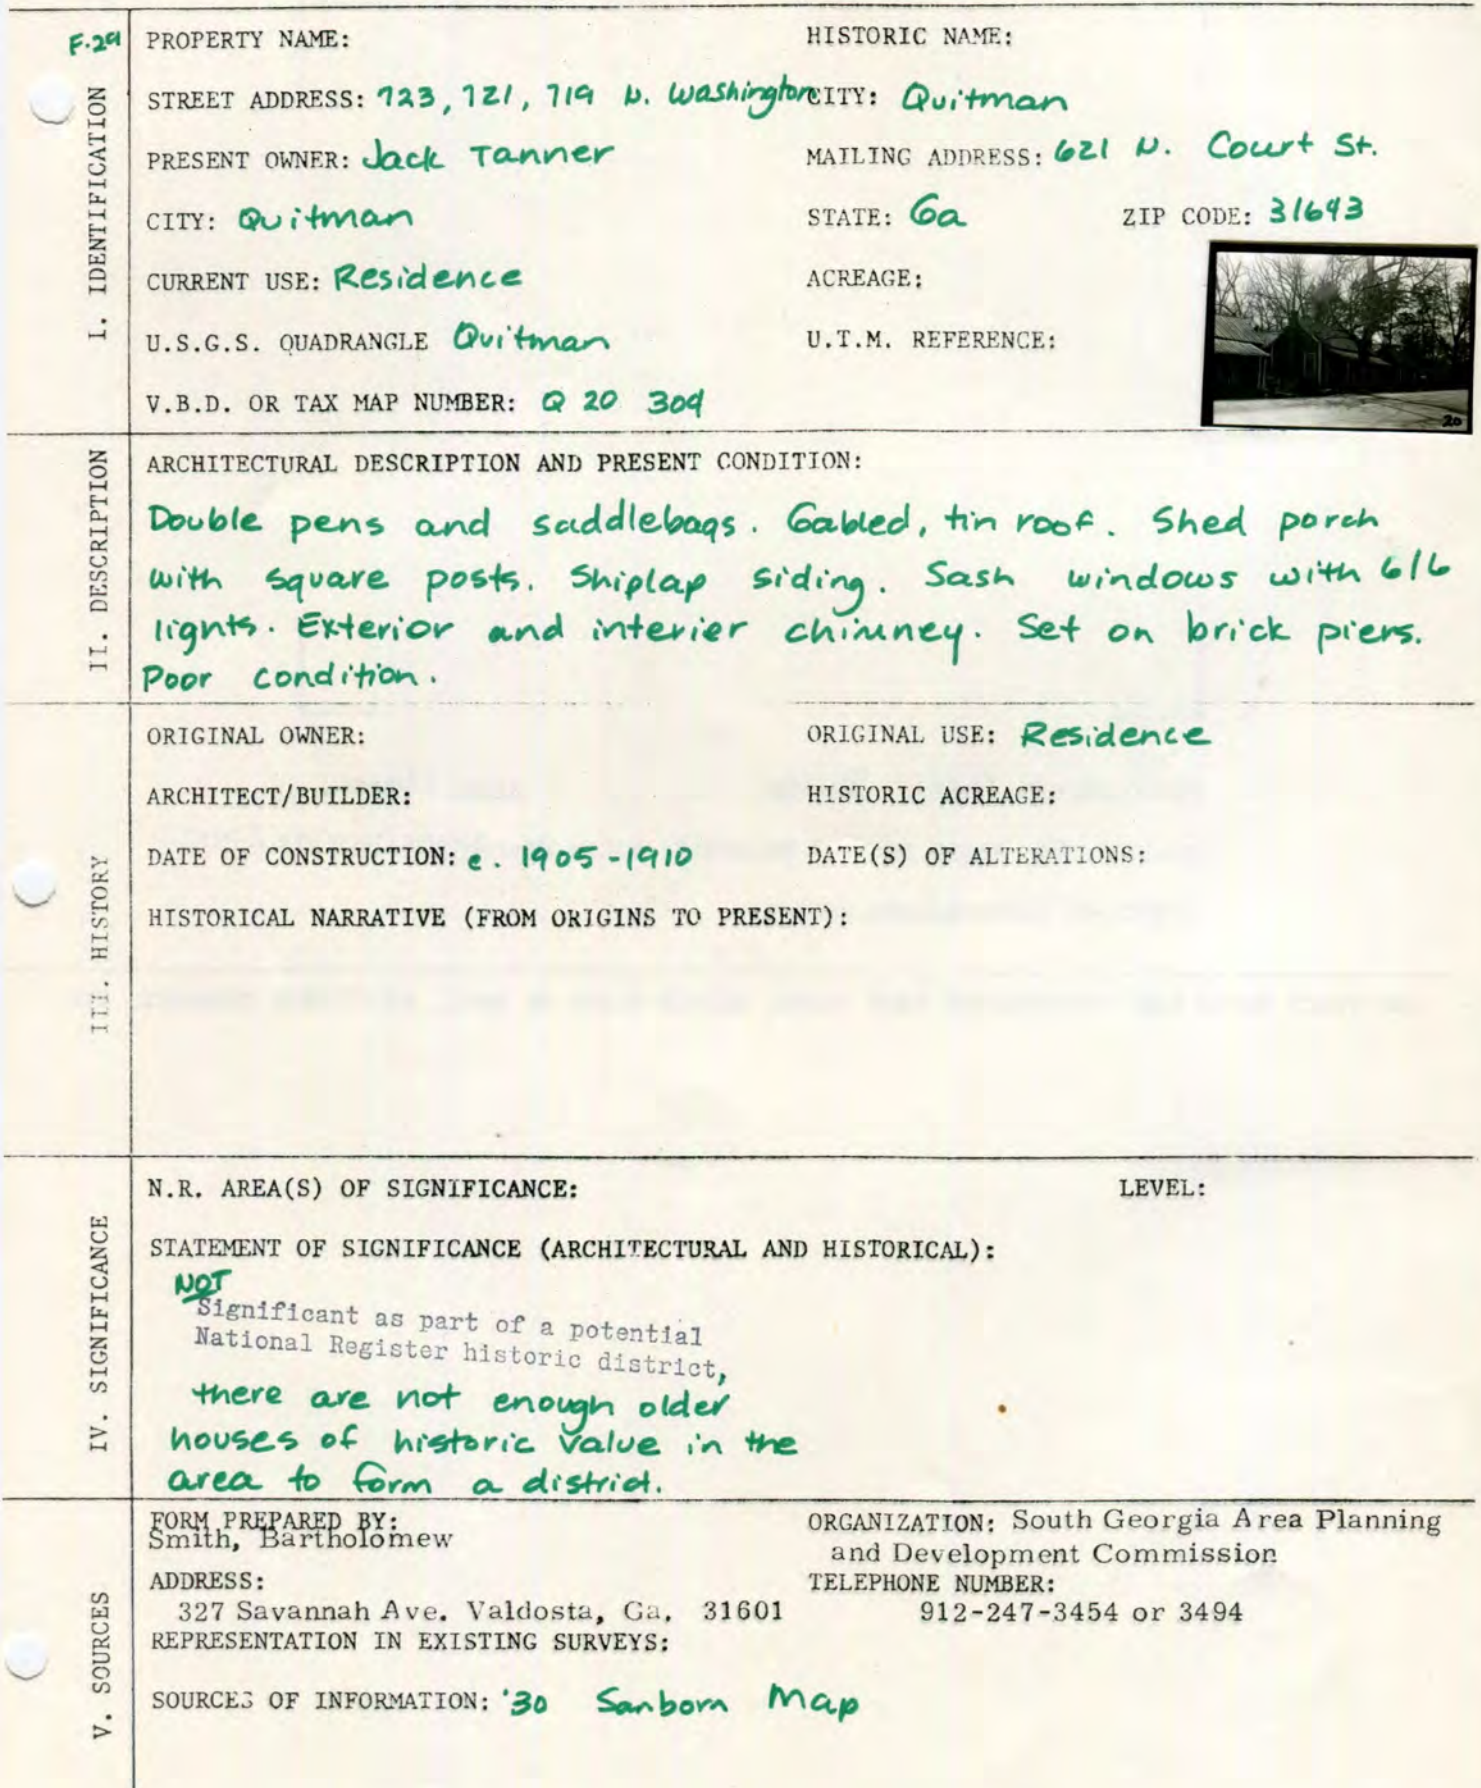 F.29
PROPERTY NAME: HISTORIC NAME:
STREET ADDRESS: 723, 721, 719 N. Washington CITY: Quitman
PRESENT OWNER: Jack Tanner MAILING ADDRESS: 621 N. Court St.
CITY: Quitman STATE: Ga ZIP CODE: 31643
CURRENT USE: Residence ACREAGE:
U.S.G.S. QUADRANGLE Quitman U.T.M. REFERENCE:
V.B.D. OR TAX MAP NUMBER: Q 20 309
20
I. IDENTIFICATION
ARCHITECTURAL DESCRIPTION AND PRESENT CONDITION:
Double pens and saddlebags. Gabled, tin roof. Shed porch
with square posts. Shiplap siding. Sash windows with 6/6
lights. Exterior and interier chimney. Set on brick piers.
Poor condition.
II. DESCRIPTION
ORIGINAL OWNER: ORIGINAL USE: Residence
ARCHITECT/BUILDER: HISTORIC ACREAGE:
DATE OF CONSTRUCTION: c. 1905-1910 DATE(S) OF ALTERATIONS:
HISTORICAL NARRATIVE (FROM ORIGINS TO PRESENT):
III. HISTORY
N.R. AREA(S) OF SIGNIFICANCE: LEVEL:
STATEMENT OF SIGNIFICANCE (ARCHITECTURAL AND HISTORICAL):
NOT
Significant as part of a potential
National Register historic district,
there are not enough older
houses of historic value in the
area to form a district.
IV. SIGNIFICANCE
FORM PREPARED BY: ORGANIZATION: South Georgia Area Planning
Smith, Bartholomew and Development Commission
ADDRESS: TELEPHONE NUMBER:
327 Savannah Ave. Valdosta, Ga. 31601 912-247-3454 or 3494
REPRESENTATION IN EXISTING SURVEYS:
SOURCES OF INFORMATION: '30 Sanborn Map
V. SOURCES